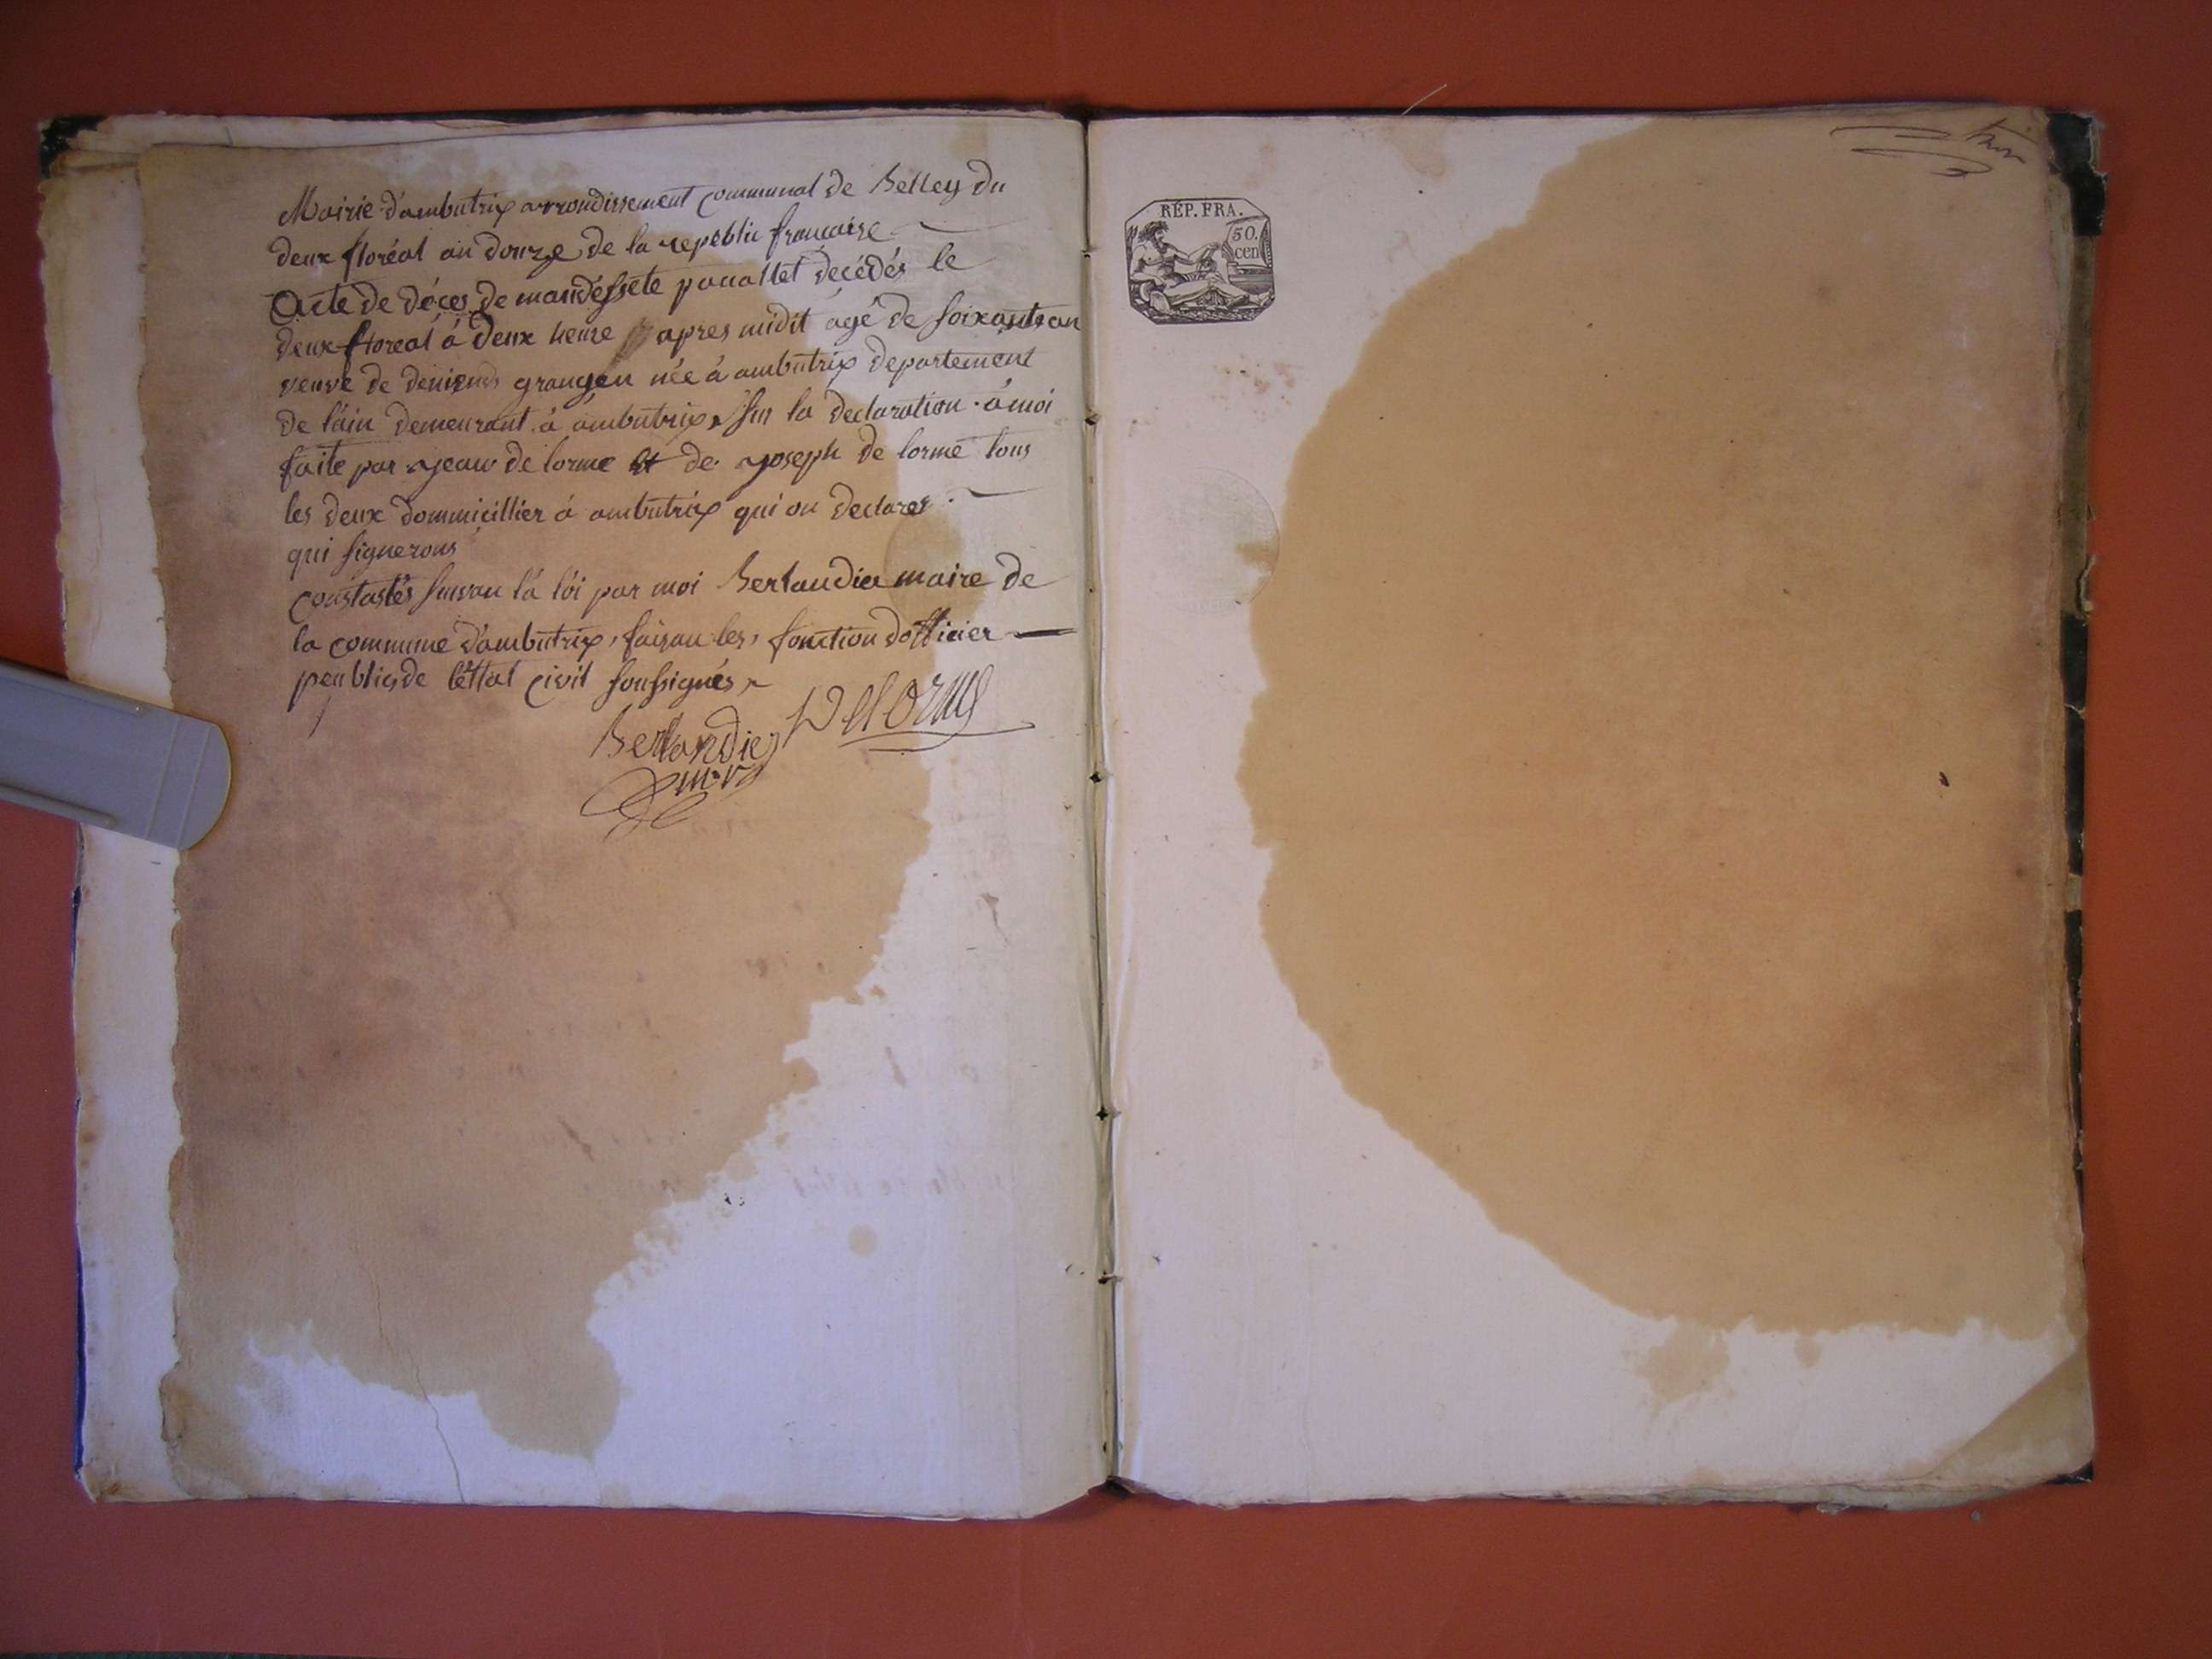 Mairie d'ambutrix arrondissement communal de Belley du
deux floréal an douze de la republic francaise
Acte de déces de mandéssete pauallet decédés le
deux floreal á deux heure apres midit agé de soixante an
veuve de deniends grangeu née á ambutrix departement
de l'áin demeurant á ambutrix sur la declaration á moi
faite par jean de lorme et de joseph de lorme tous
les deux dommicillier á ambutrix qui on declarer
qui signerons
constastés suivan lá lói par moi Berlandier maire de
la commune d'ambutrix, faisan les, fonction dofficier
peublic de léttat civil soussignés
Berlandier Delorme
RÉP. FRA.
50.
cen